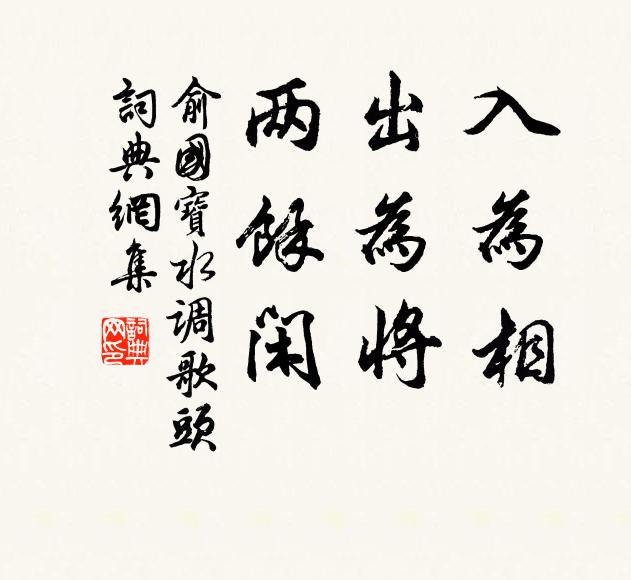 入為相
出為將
两餘闲
俞國寶水调歌頭
詞典網集
詞典网印